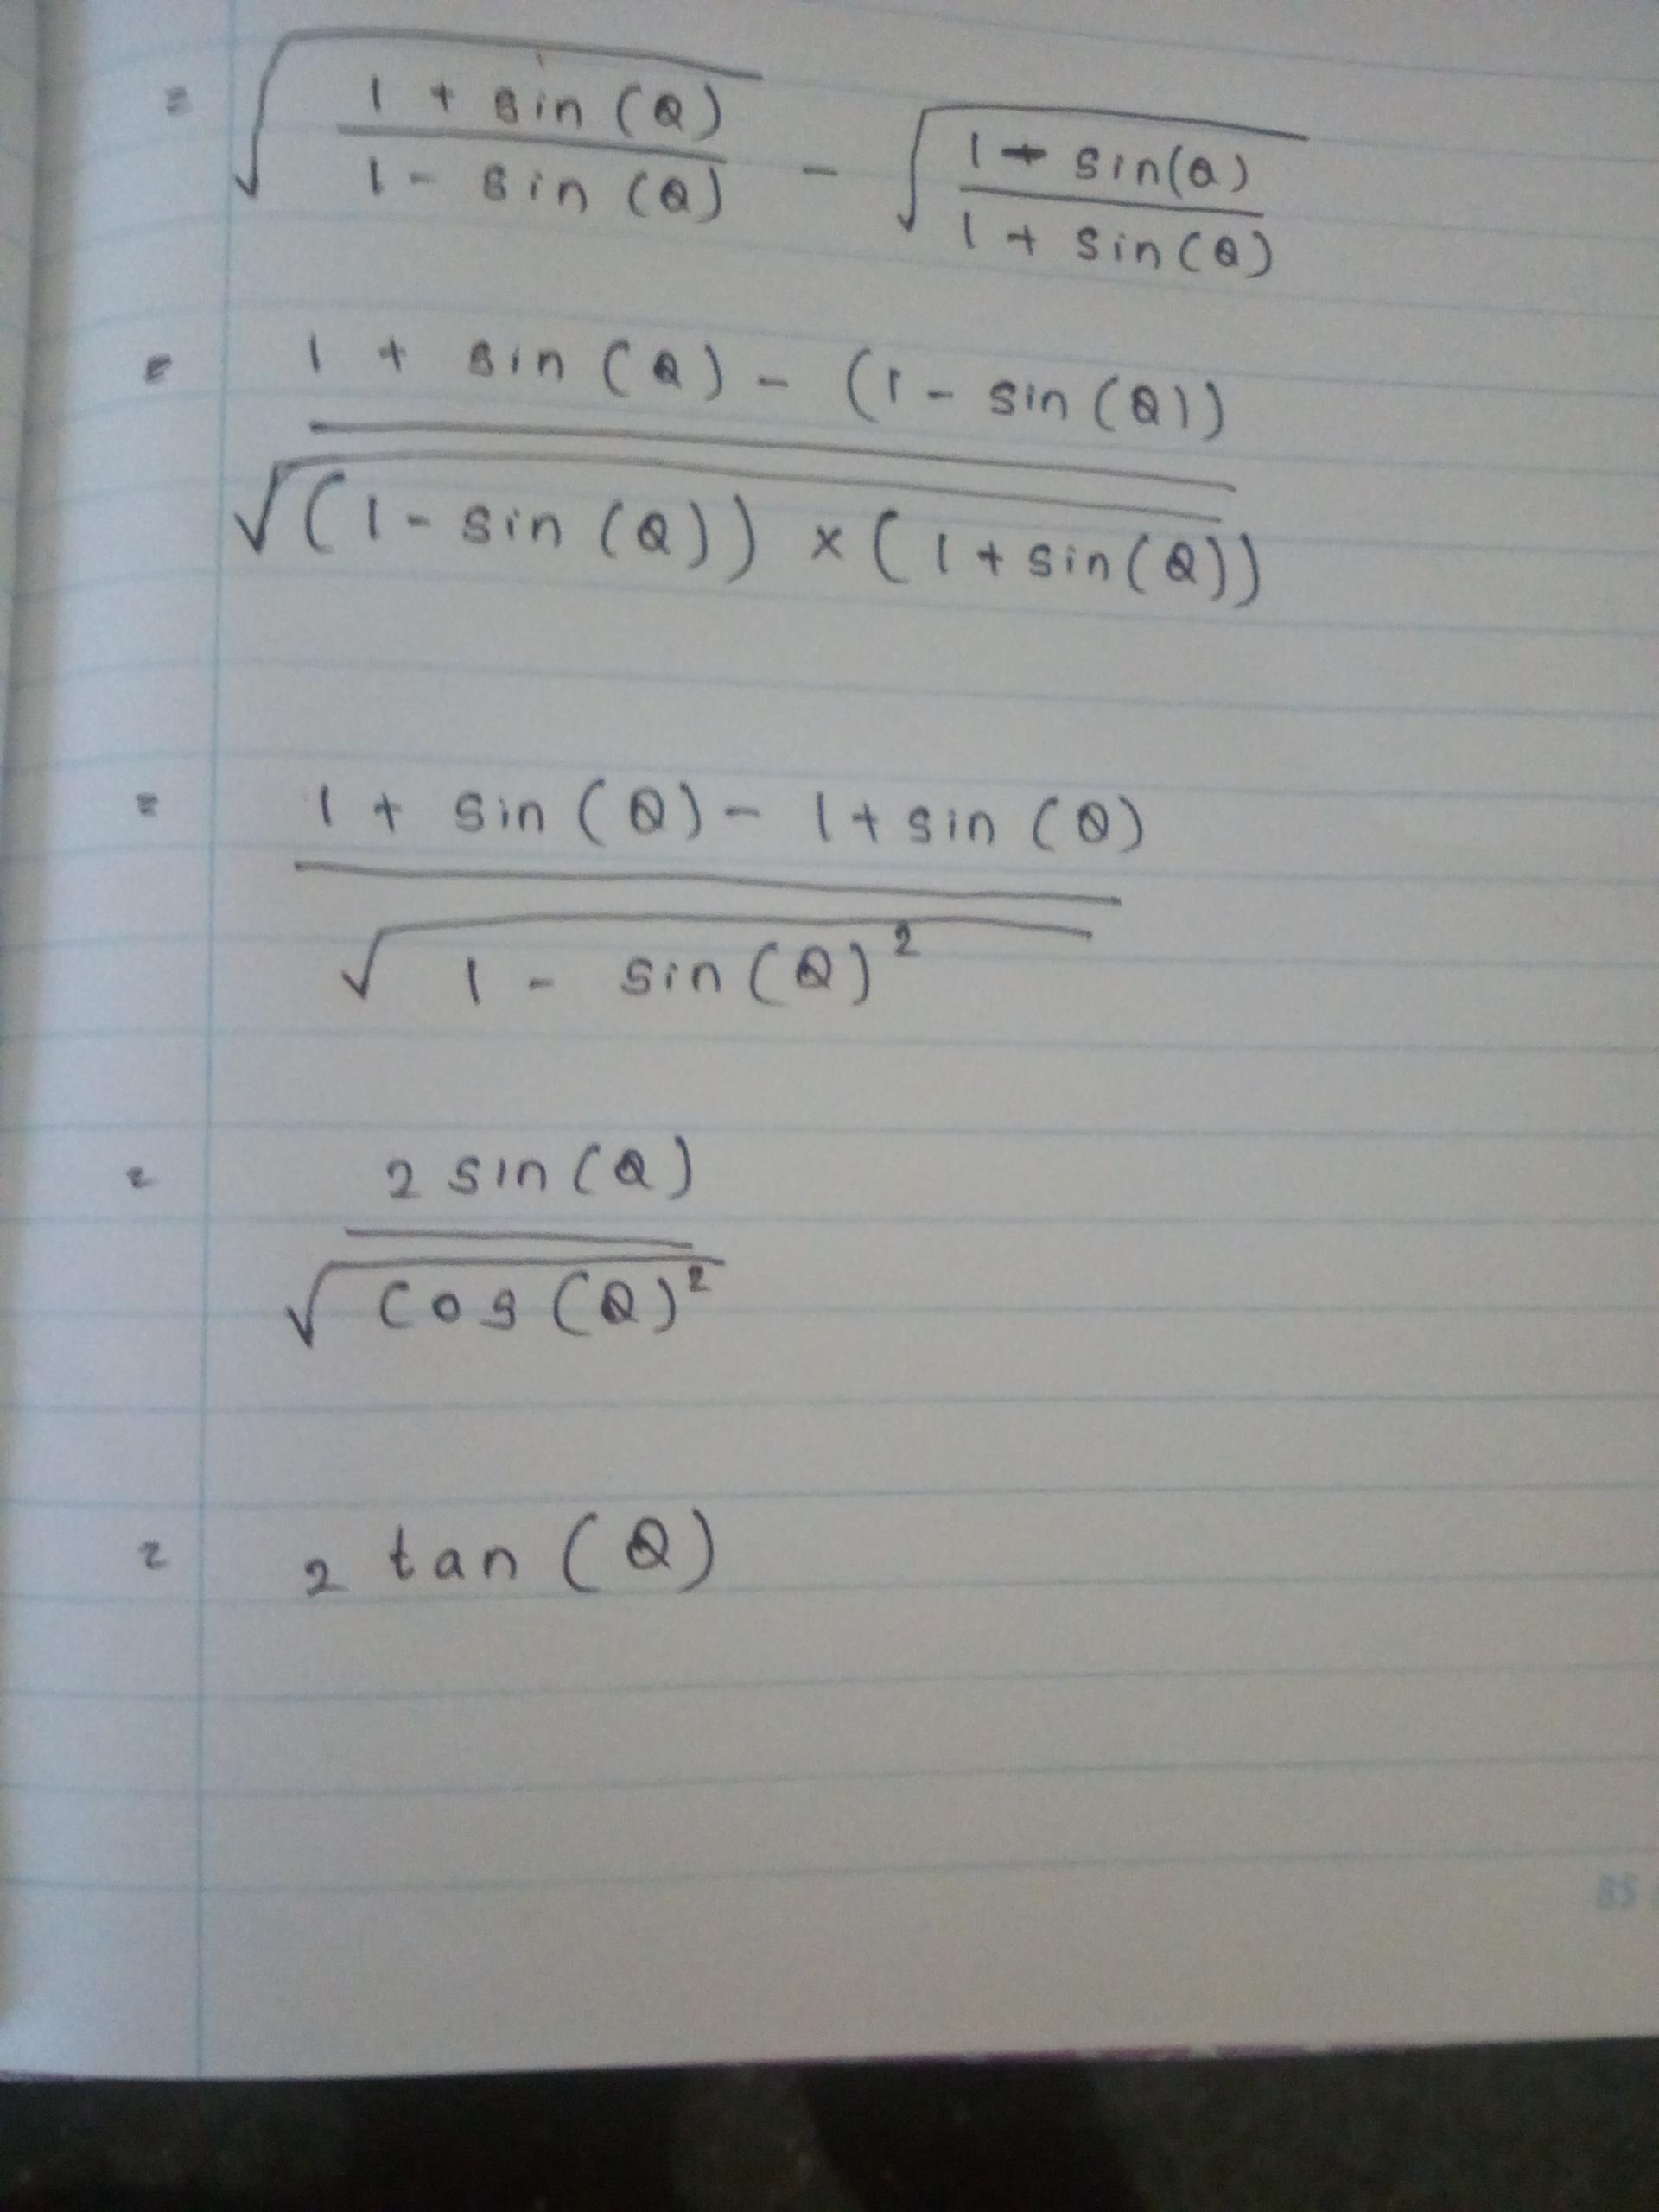 = √((1 + sin (Q))/(1 - sin (Q))) - √((1 + sin(Q))/(1 + sin(Q)))
= (1 + sin (Q) - (1 - sin (Q)))/√((1 - sin (Q)) × (1 + sin(Q)))
= (1 + sin (Q) - 1 + sin (Q))/√(1 - sin (Q)²)
= 2 sin (Q)/√(cos (Q)²)
= 2 tan (Q)
85